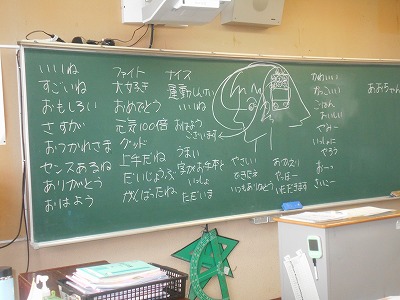 いいね
すごいね
おもしろい
さすが
おつかれさま
センスあるね
ありがとう
おはよう
ファイト
大好き
おめでとう
元気100倍
グッド
上手だね
だいじょうぶ
がんばったね
ナイス
運動しんけい
いいね
おはよう
ございます
うまい
字がお手本
いっしょ
ただいま
やさしい
いつもありがとう
おかえり
やっほー
いただきます
かわいい
かっこいい
ごはん
おいしい
やみー
いっしょに
やろう
おーっ
さいこー
あおちゃん